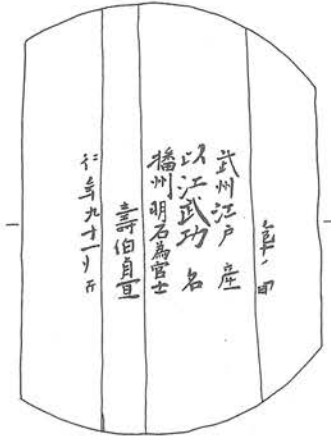 武州江戸産
以江武功名
播州明石為官士
壽伯貞亘
行年九十一才